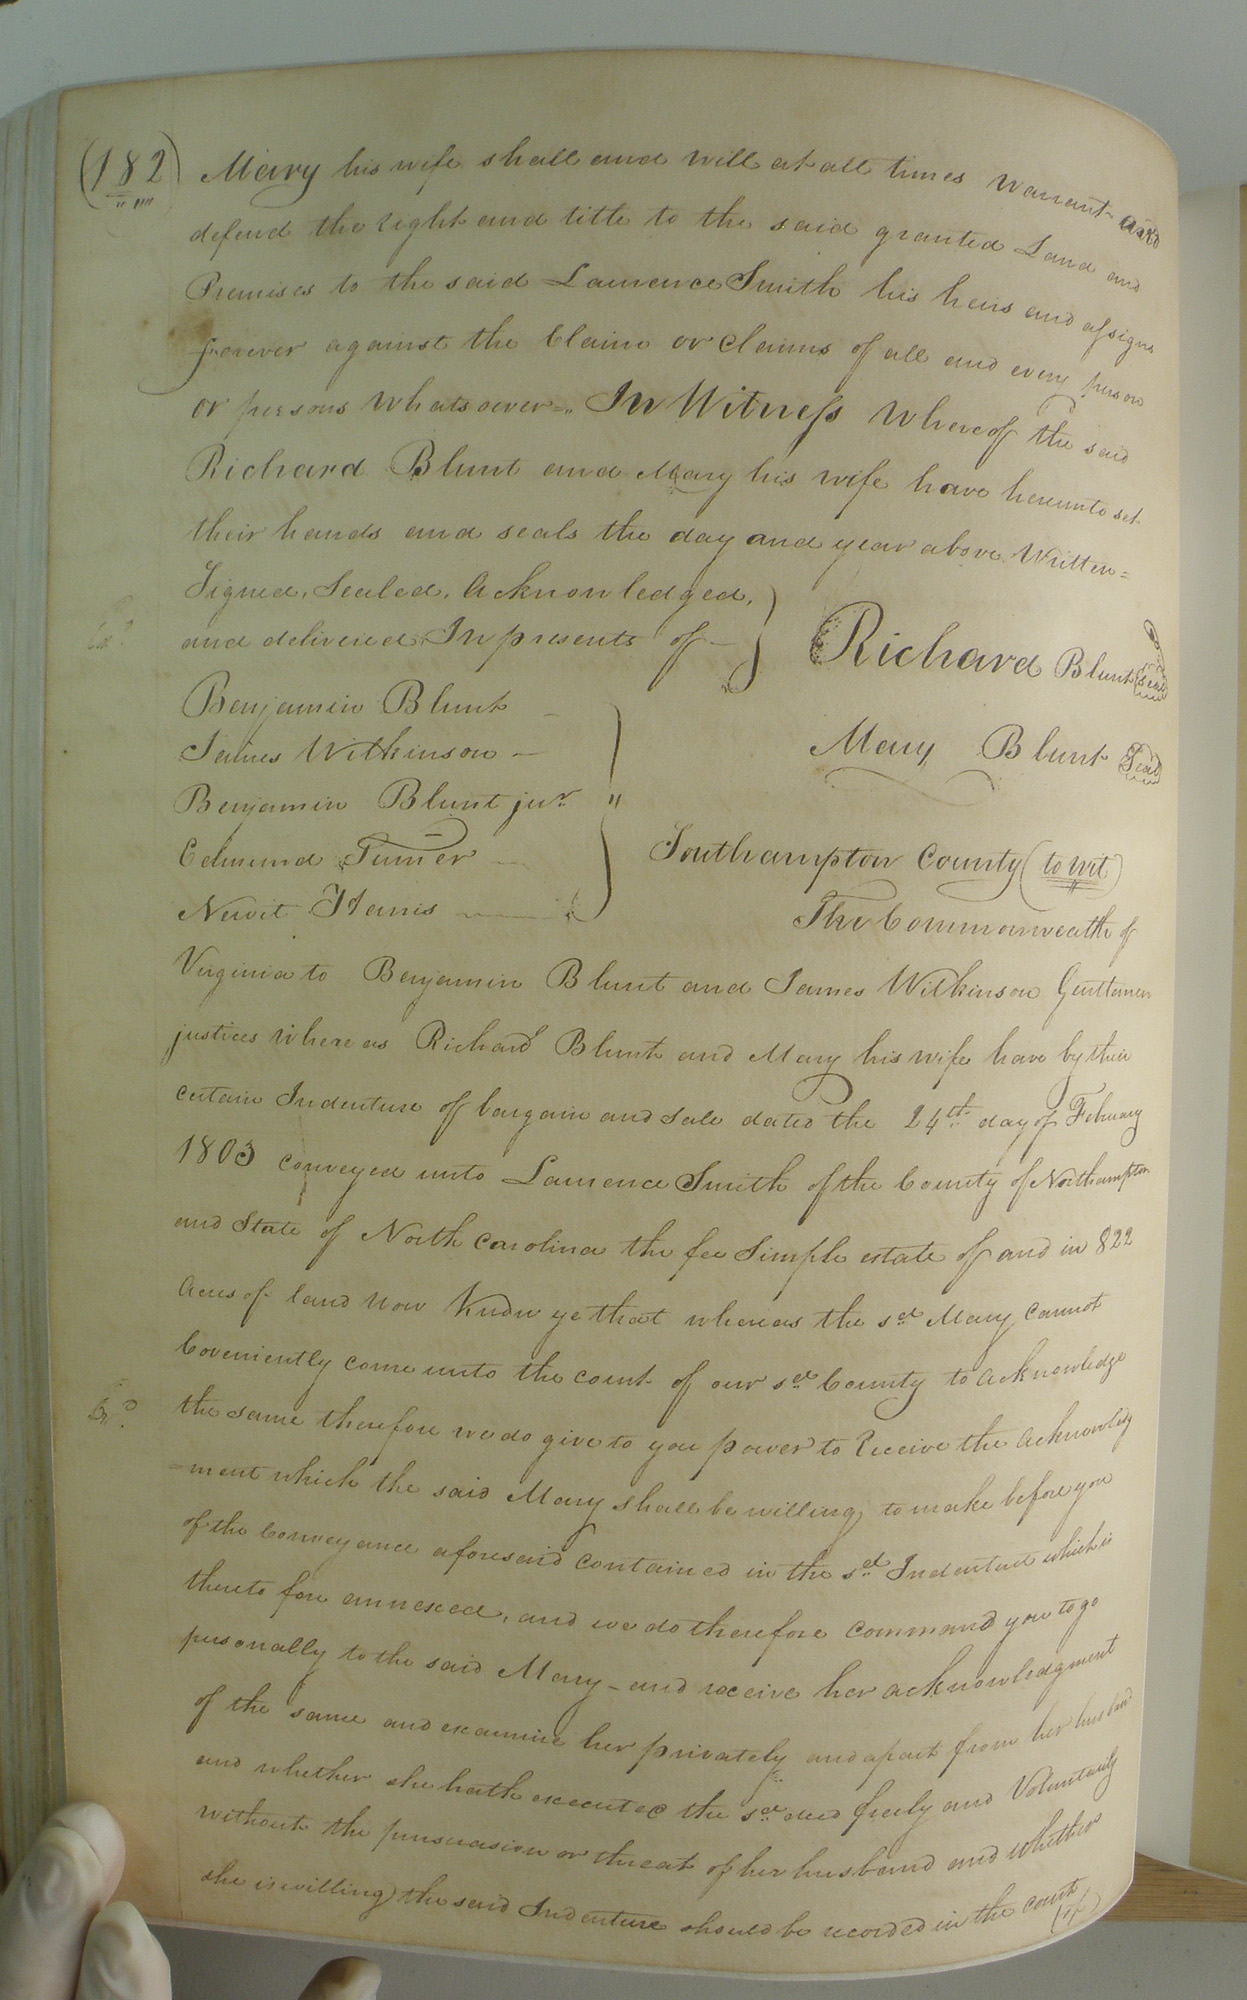 (182) Mary his wife shall and will at all times warrant and
defend the right and title to the said granted Land and
Premises to the said Laurence Smith his heirs and assigns
forever against the Claim or Claims of all and every person
or persons whatsoever=„ In Witness Whereof the said
Richard Blunt and Mary his wife have hereunto set
their hands and seals the day and year above Written=
Signed, Sealed, Acknowledged,
and delivered In presents of —
Richard Blunt Seal
Benjamin Blunt —
James Wilkinson —
Mary Blunt Seal
Benjamin Blunt junr
Edmund Turner —
Newit Harris —
Southampton County (to wit)
The Commonwealth of
Virginia to Benjamin Blunt and James Wilkinson Gentlemen
justices where as Richard Blunt and Mary his wife have by their
certain Indenture of bargain and Sale dated the 24th day of February
1803 conveyed unto Laurence Smith of the County of Northampton
and State of North Carolina the fee Simple estate of and in 822
Acres of land Now Know ye that whereas the sd Mary cannot
Coveniently come unto the court of our sd County to acknowledge
the same therefore we do give to you power to Receive the acknowledg
-ment which the said Mary shall be willing to make before you
of the Conveyance aforesaid contained in the sd Indenture which is
thereto fore annexed, and we do therefore command you to go
personally to the said Mary - and receive her acknowledgment
of the same and examine her privately and apart from her husband
and whether she hath executed the sd deed freely and Voluntarily
without the pursuasion or threat of her husband and whether
she is willing the said Indenture should be recorded in the court